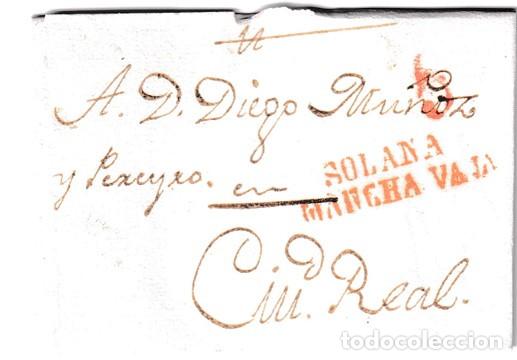 A. D. Diego Muñoz
y Pereyro. en
SOLANA
MANCHA VAJA
Ciu.d Real.
todocoleccion.net